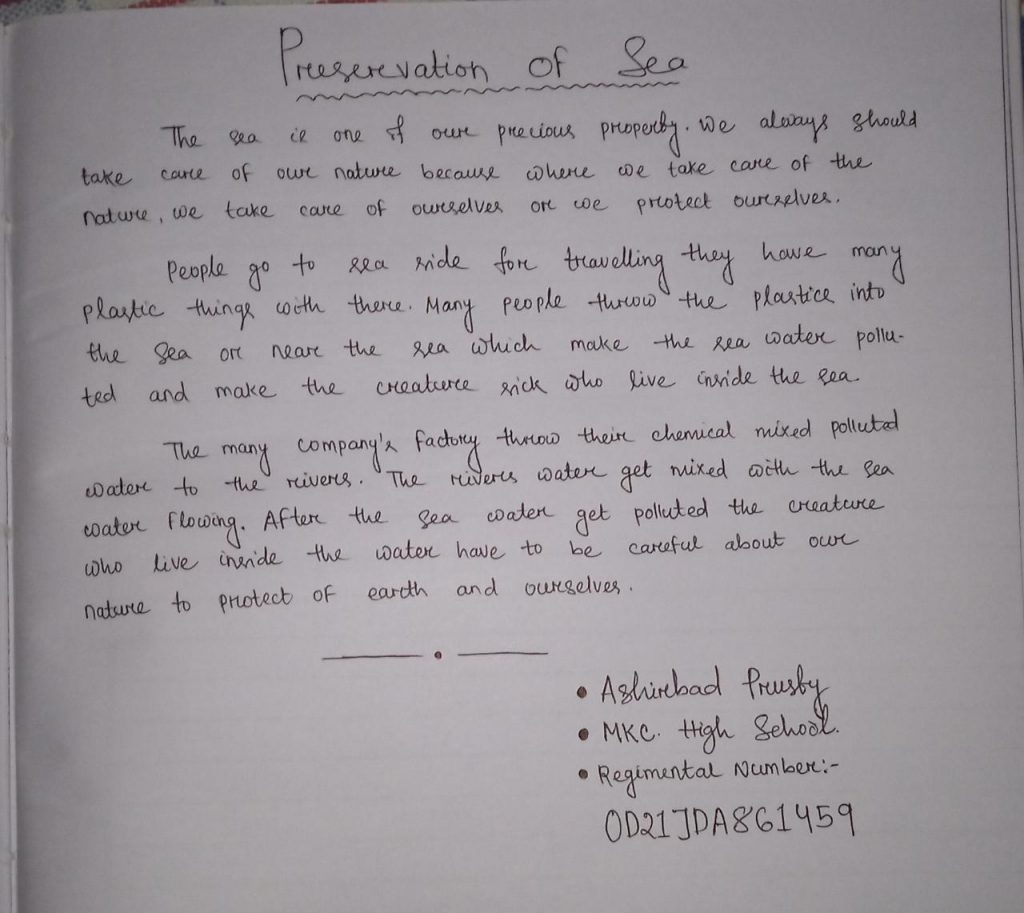 Preserevation of Sea
The sea is one of oure precious property. We always should
take care of our nature because where we take care of the
nature, we take care of ourselves or we protect ourselves.
People go to sea side for travelling they have many
plastic things with there. Many people throw the plastice into
the Sea or near the sea which make the sea water pollu-
ted and make the creature sick who live inside the sea.
The many company's factory throw their chemical mixed polluted
water to the rivers. The rivers water get mixed with the sea
water flowing. After the sea water get polluted the creature
who live inside the water have to be careful about our
nature to protect of earth and ourselves.
• Ashirbad Prusty
• MKC. High School.
• Regimental Number:-
OD21JDA861459